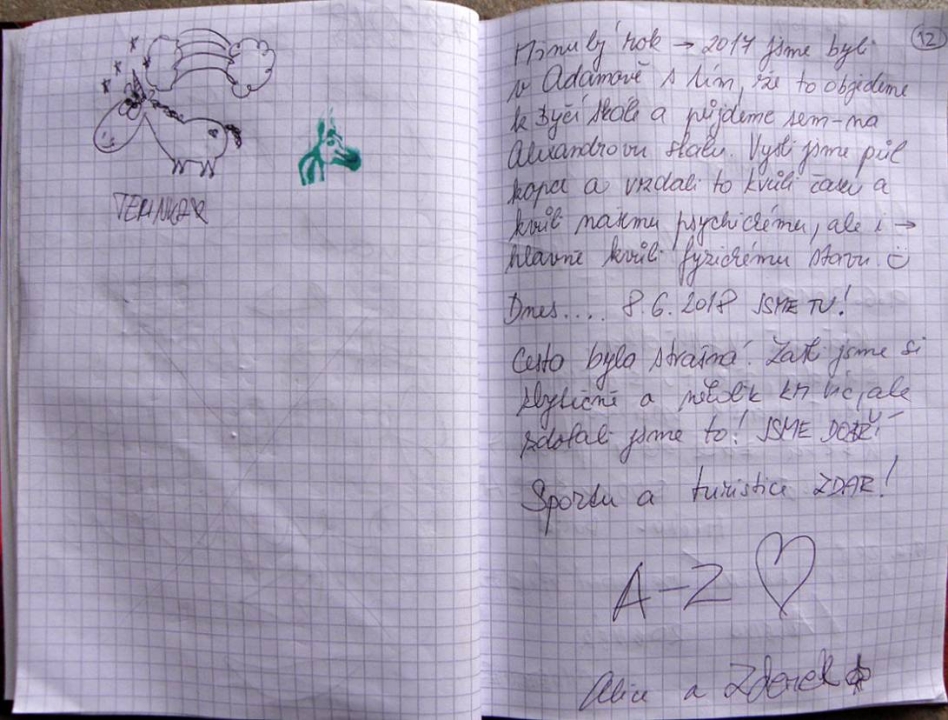 12
Minulý rok → 2017 jsme byli
v Adamově s tím, že to objedeme
k Býčí skále a půjdeme sem-na
Alexandrovu skálu. Vyšli jsme půl
kopce a vzdali to kvůli času a
kvůli našemu psychickému, ale i →
hlavně kvůli fyzickému stavu.
Dnes.... 8.6.2018 JSME TU!
Cesta byla strašná! Zašli jsme si
zbytečně a několik km víc, ale
zdolali jsme to! JSME DOBŘÍ
Sportu a turistice ZDAR!
A-Z
Alice a Zdenek